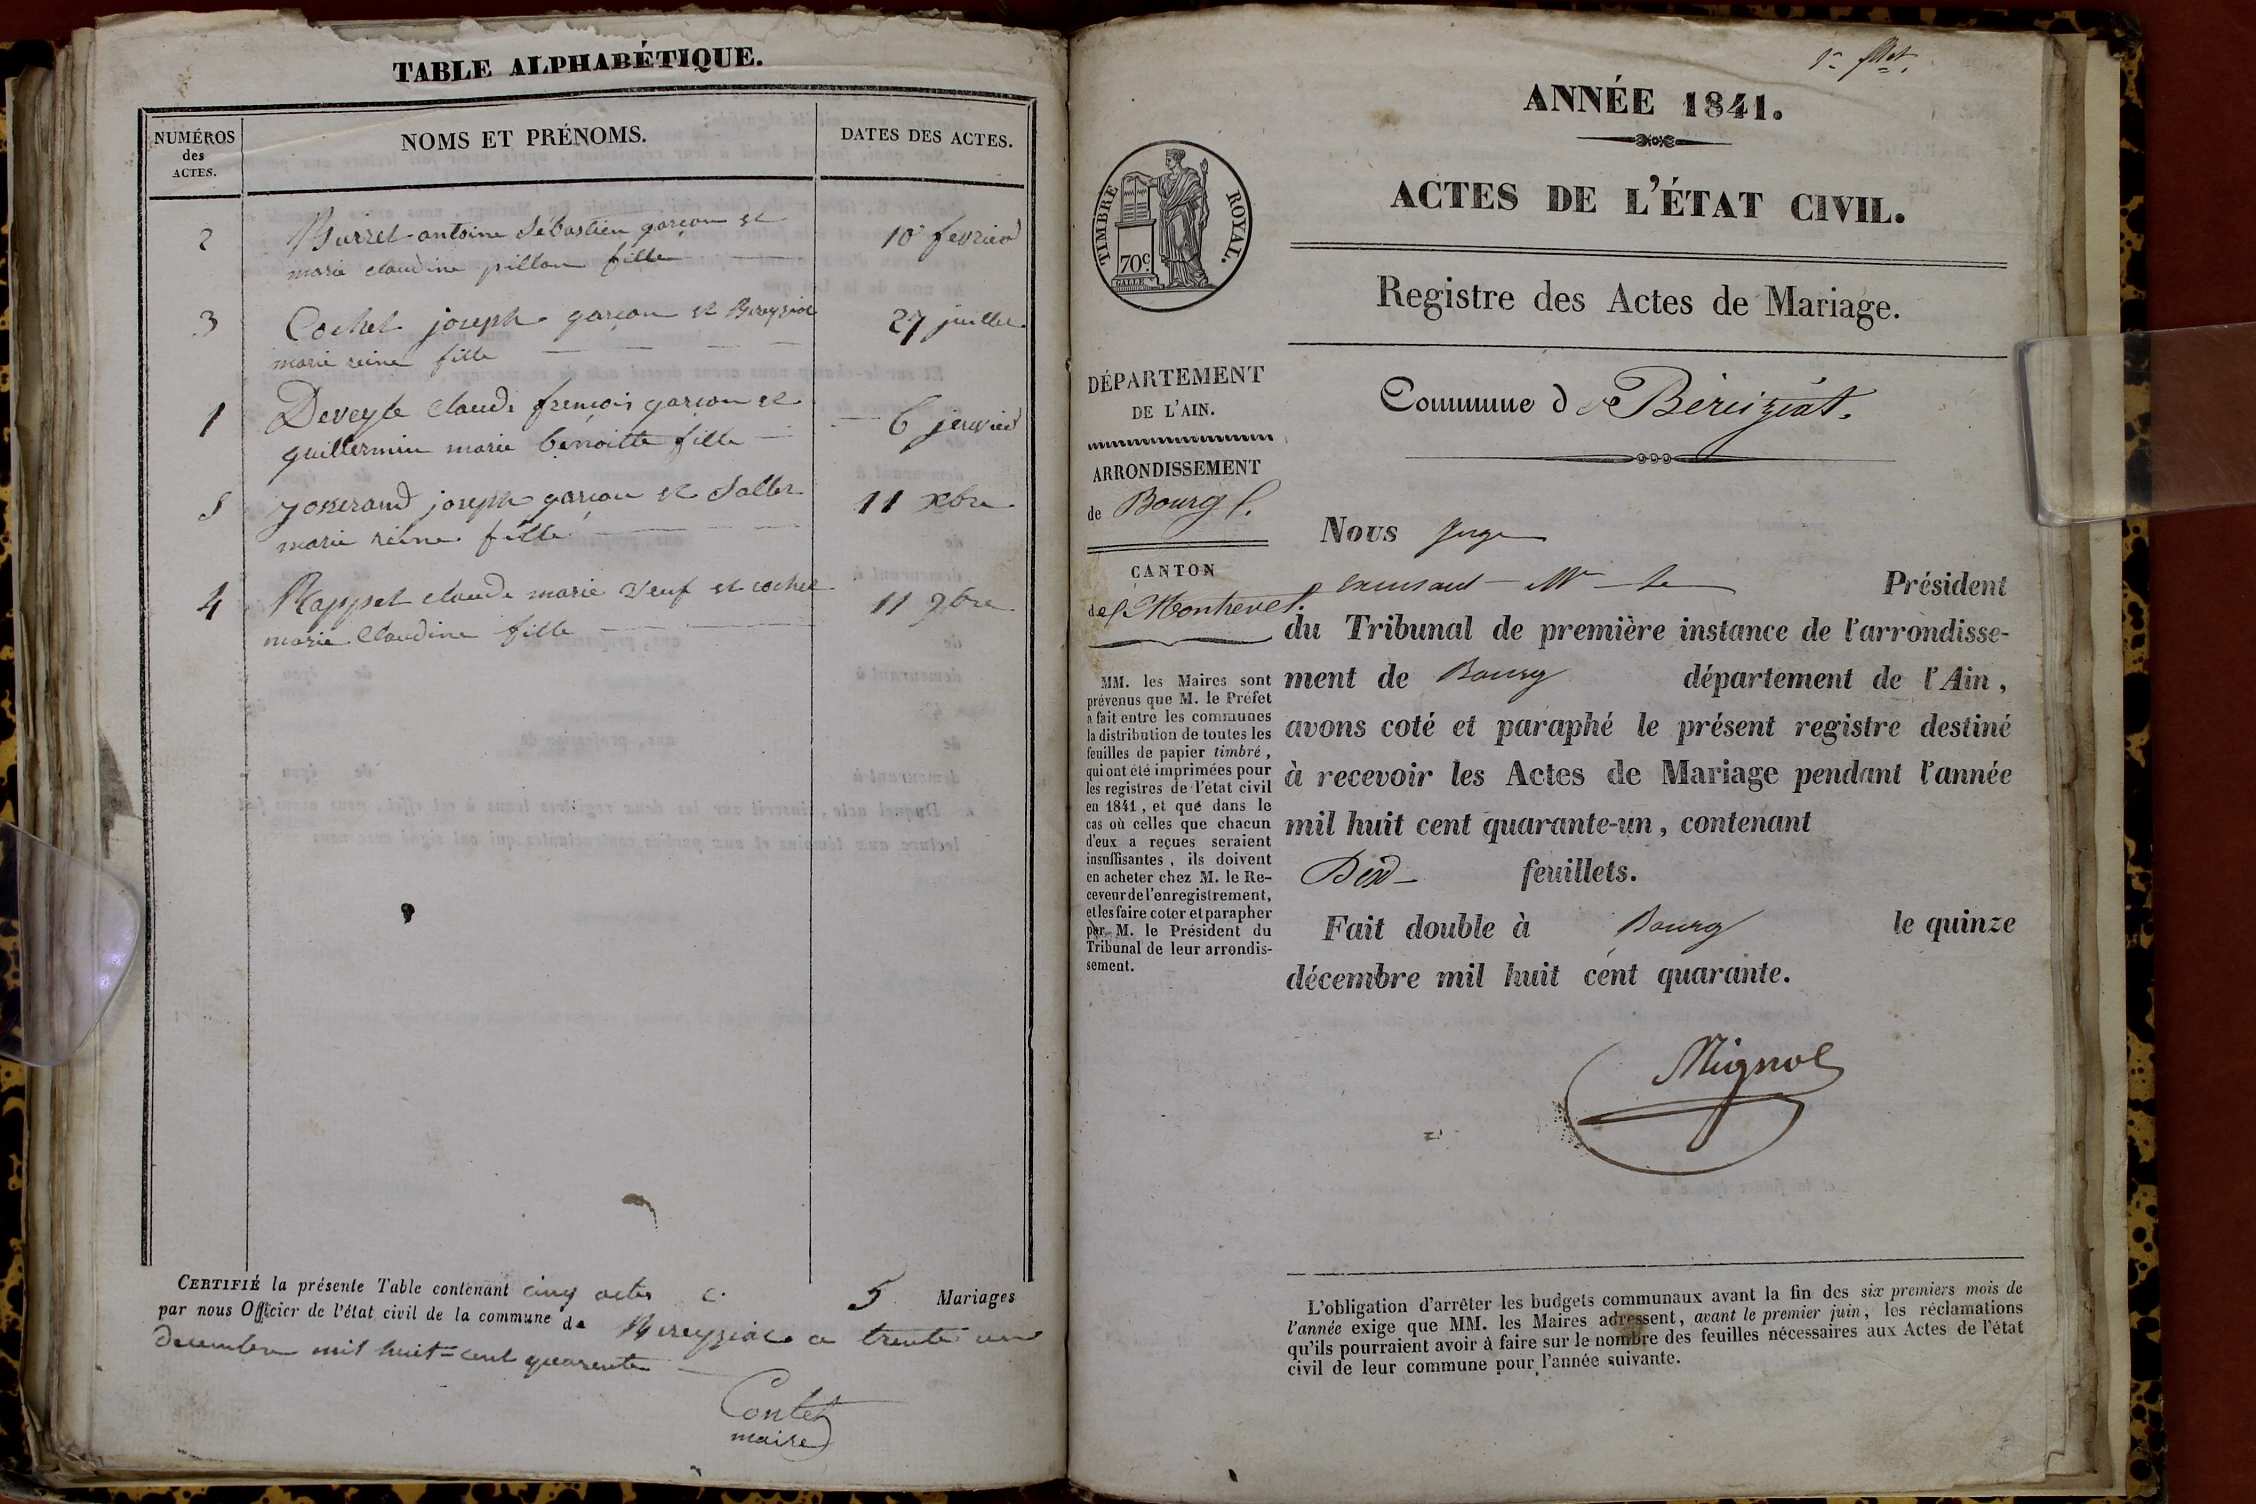 TABLE ALPHABÉTIQUE.
NUMÉROS
des
ACTES.
NOMS ET PRÉNOMS.
DATES DES ACTES.
2 Burret antoine Sébastien garcon et 10 fevrier
marie claudine pillon fille
3 Cochet joseph garcon et Bereyziat 27 juillet
marie reine fille
1 Deveyle claude francois garcon et 6 janvier
guillermin marie benoitte fille
5 Josserand joseph garcon et Sallet 11 xbre
marie reine fille
4 Rappet claude marie veuf et cochet 11 9bre
marie claudine fille
CERTIFIÉ la présente Table contenant cinq actes 5 Mariages
par nous Officier de l'état civil de la commune de Bereyziat ce trente un
decembre mil huit=cent quarente
Contet
maire
1er fllet.
ANNÉE 1841.
ACTES DE L'ÉTAT CIVIL.
Registre des Actes de Mariage.
TIMBRE ROYAL.
70c
GALLE
DÉPARTEMENT
DE L'AIN.
ARRONDISSEMENT
de Bourg
CANTON
de Montrevel.
MM. les Maires sont
prévenus que M. le Préfet
a fait entre les communes
la distribution de toutes les
feuilles de papier timbré,
qui ont été imprimées pour
les registres de l'état civil
en 1841, et que dans le
cas où celles que chacun
d'eux a reçues seraient
insuffisantes, ils doivent
en acheter chez M. le Re-
ceveur de l'enregistrement,
et les faire coter et parapher
par M. le Président du
Tribunal de leur arrondis-
sement.
Commune de Béreiziat.
Nous Juge
excusant Mr le Président
du Tribunal de première instance de l'arrondisse-
ment de Bourg département de l'Ain,
avons coté et paraphé le présent registre destiné
à recevoir les Actes de Mariage pendant l'année
mil huit cent quarante-un, contenant
Dix feuillets.
Fait double à Bourg le quinze
décembre mil huit cent quarante.
Mignot
L'obligation d'arrêter les budgets communaux avant la fin des six premiers mois de
l'année exige que MM. les Maires adressent, avant le premier juin, les réclamations
qu'ils pourraient avoir à faire sur le nombre des feuilles nécessaires aux Actes de l'état
civil de leur commune pour l'année suivante.